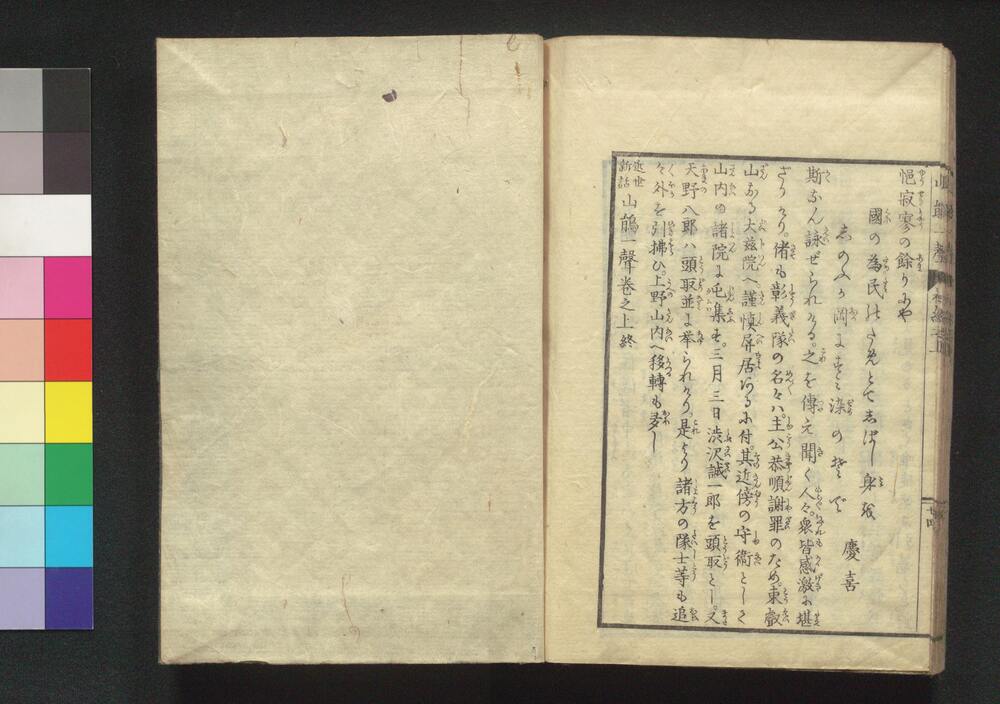 悒寂寥の餘りにや
國の為民のためとてしばし身を
しのぶが岡にすミ染のそで
慶喜
斯なん詠ぜられける。之を傳え聞く人々。衆皆感激に堪
ざりけり。偖も彰義隊の名々ハ。主公恭順謝罪のため。東叡
山なる大慈院へ。謹慎屏居ゐるに付。其近傍の守衞として
山内の諸院に屯集す。三月三日渋沢誠一郎を頭取とし。又
天野八郎ハ頭取並に挙られけり。是より諸方の隊士等も追
々外を引拂ひ。上野山内へ移轉も多し
近世新話 山鵑一聲卷之上終